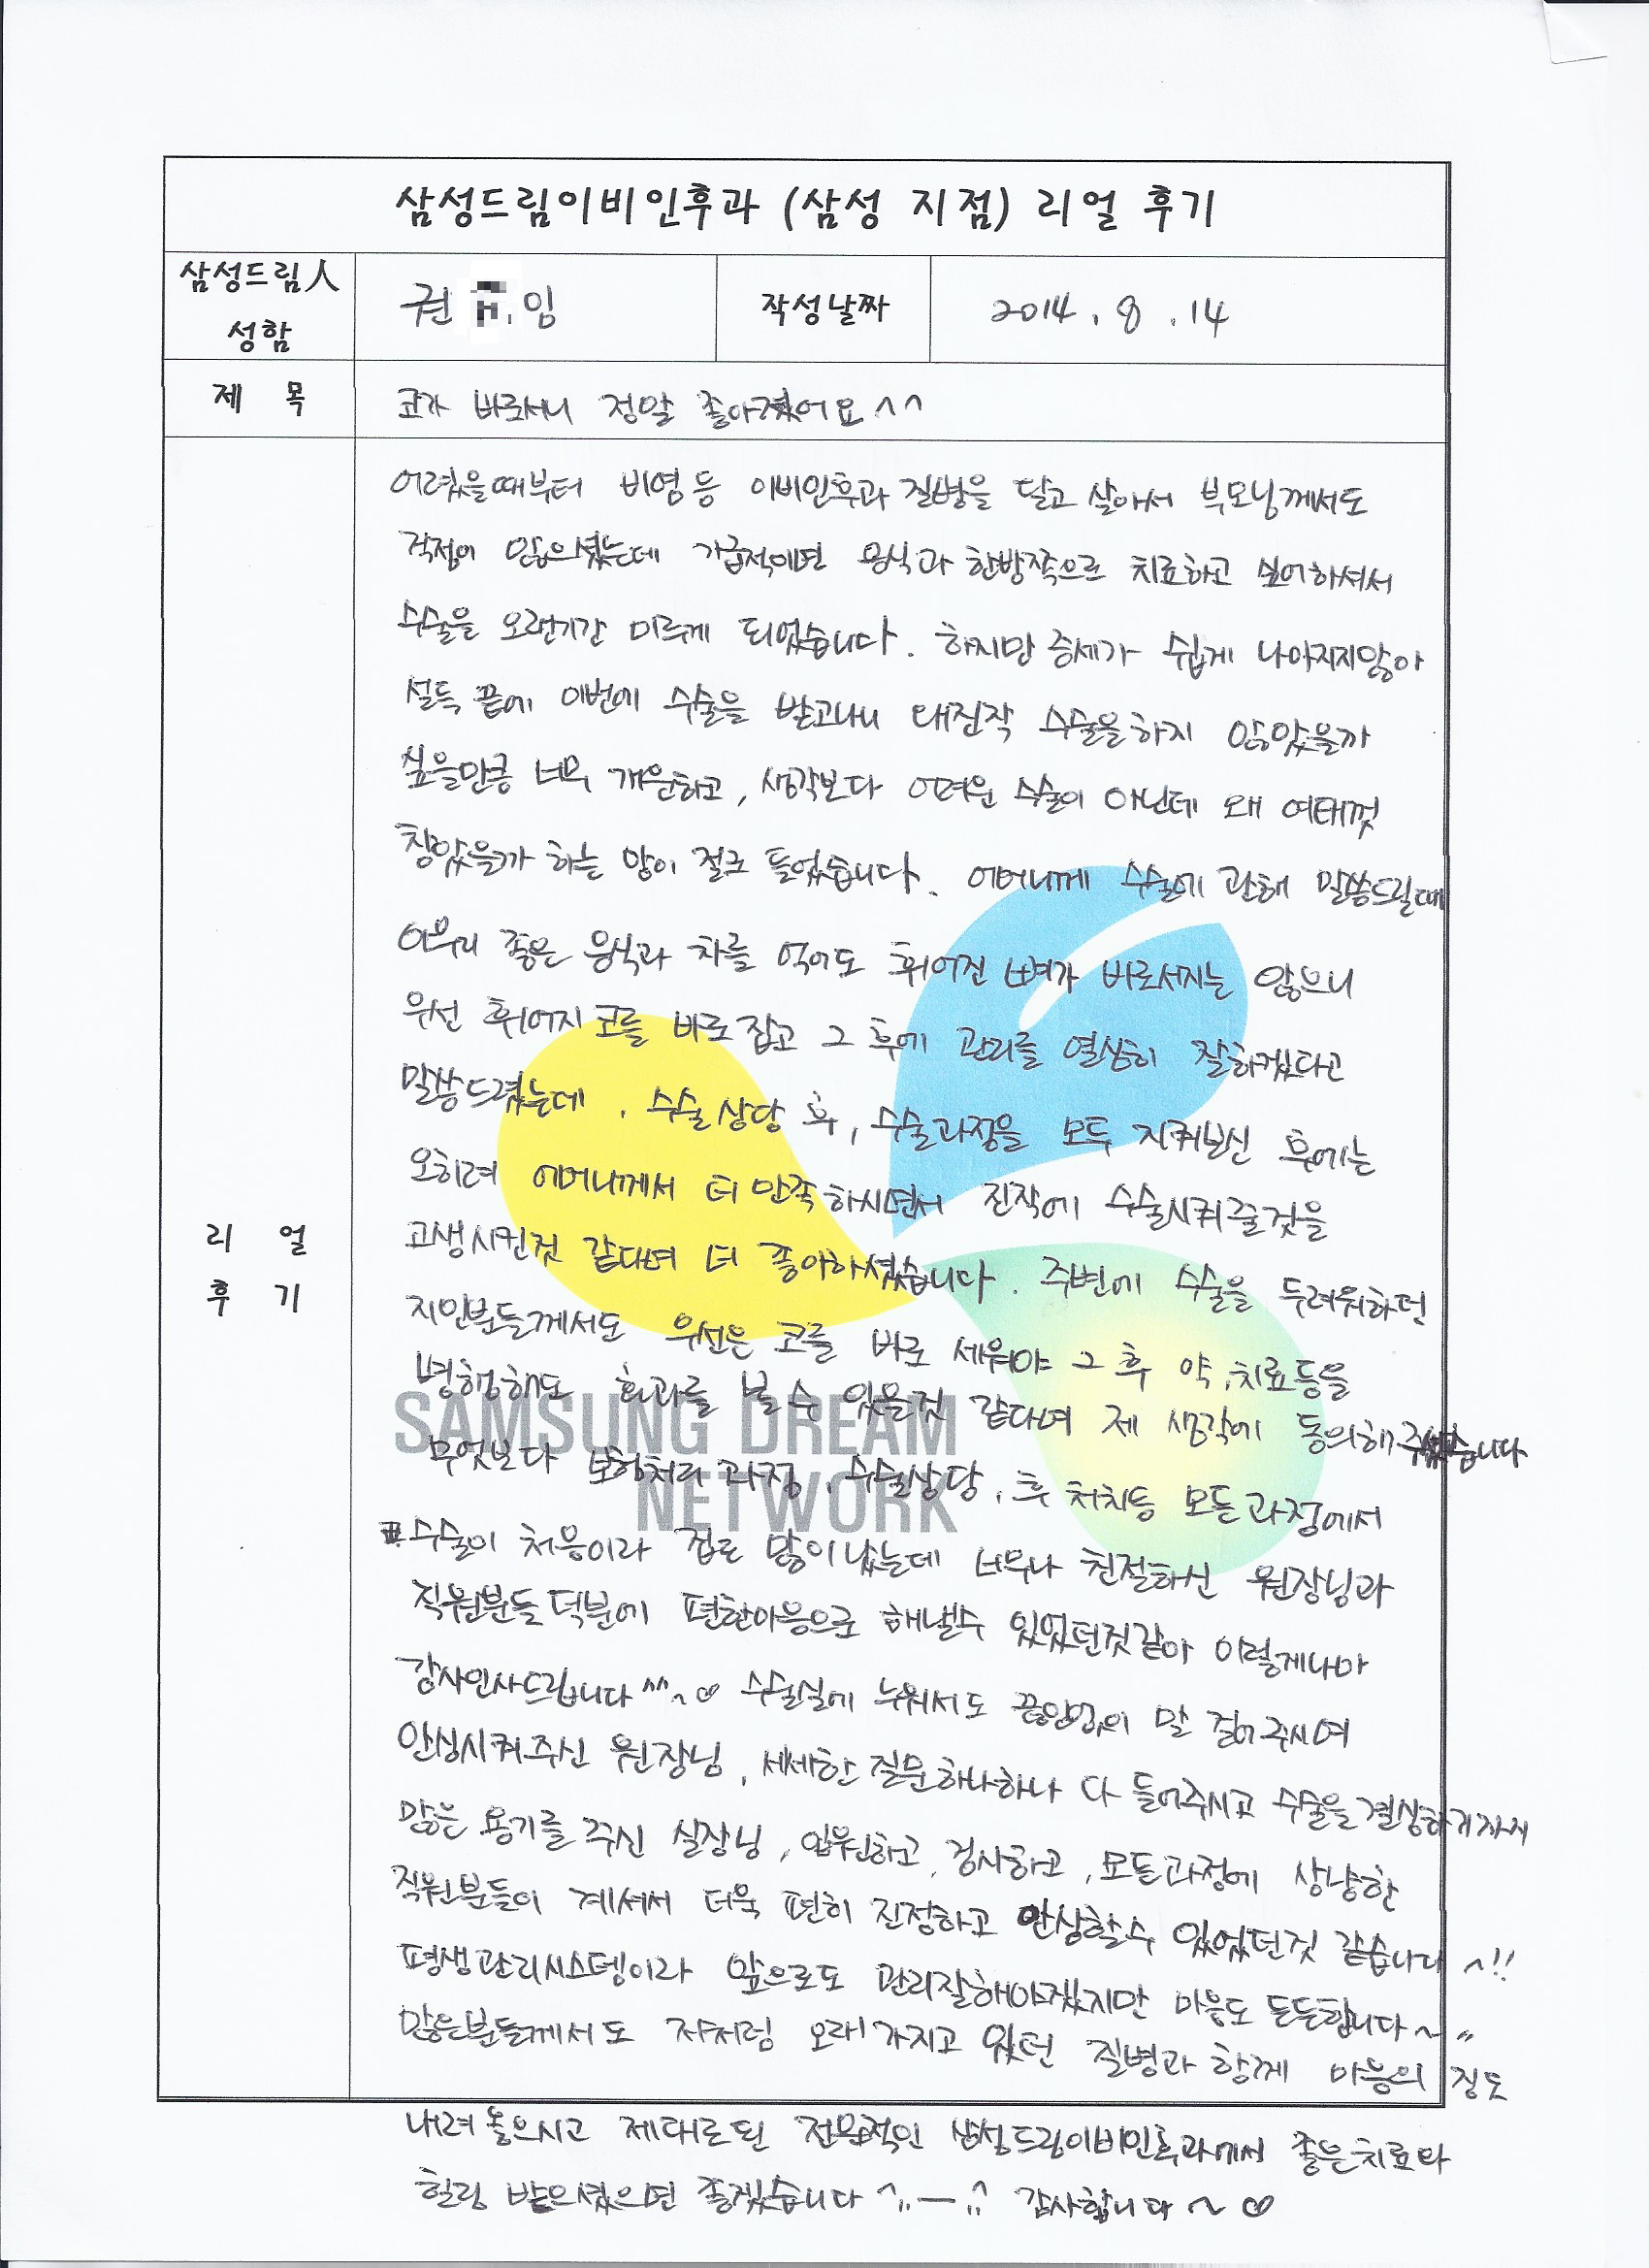 삼성드림이비인후과 (삼성 지점) 리얼 후기
삼성드림人 성함
권 임
작성날짜
2014. 8. 14
제 목
코가 바로서니 정말 좋아졌어요^^
리 얼 후 기
어렸을때부터 비염 등 이비인후과 질병을 달고 살아서 부모님께서도
걱정이 많으셨는데 가급적이면 음식과 한방쪽으로 치료하고 싶어하셔서
수술을 오랜기간 미루게 되었습니다. 하지만 증세가 쉽게 나아지지않아
설득 끝에 이번에 수술을 받고나니 왜진작 수술을하지 않았을까
싶을만큼 너무 개운하고, 생각보다 어려운 수술이 아닌데 왜 여태껏
참았을까 하는 맘이 절로 들었습니다. 어머니께 수술에 관해 말씀드릴때
아무리 좋은 음식과 차를 먹어도 휘어진 뼈가 바로서지는 않으니
우선 휘어지 코를 바로잡고 그 후에 관리를 열심히 잘하겠다고
말씀드렸는데, 수술상담 후, 수술과정을 모두 지켜보신 후에는
오히려 어머니께서 더 만족하시면서 진작에 수술시켜줄것을
고생시킨것 같다며 더 좋아하셨습니다. 주변에 수술을 두려워하던
지인분들께서도 우선은 코를 바로 세워야 그 후 약, 치료등을
병행해도 효과를 볼 수 있을것 같다며 제 생각에 동의해주셨습니다
무엇보다 보험처리 과정, 수술상담, 후 처치등 모든과정에서
수술이 처음이라 겁도 많이났는데 너무나 친절하신 원장님과
직원분들 덕분에 편한마음으로 해낼수 있었던것같아 이렇게나마
감사인사드립니다^^~♡ 수술실에 누워서도 끊임없이 말 걸어주시며
안심시켜주신 원장님, 세세한 질문하나하나 다 들어주시고 수술을결심하기까지
많은 용기를 주신 실장님, 입원하고, 검사하고, 모든과정에 상냥한
직원분들이 계셔서 더욱 편히 진정하고 안심할수 있었던것 같습니다~!!
평생관리시스템이라 앞으로도 관리잘해야겠지만 마음도 든든합니다~"
많은분들께서도 저처럼 오래가지고 있던 질병과 함께 마음의 짐도
내려놓으시고 제대로된 전문적인 삼성드림이비인후과에서 좋은치료와
힐링 받으셨으면 좋겠습니다^,,ㅡ,,^ 감사합니다~♡
SAMSUNG DREAM
NETWORK